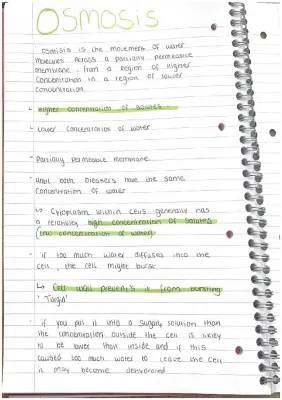 OSMOSIS
osmosis is the movement of water
molecules across a partially permeable
membrane from a region of higher
concentration in a region of lower
concentration.
Higher concentration of solutes
Lower concentration of water
Partially permeable membrane
Until both breakers have the same
concentration of water
↳ Cytoplasm within cells generally has
a relatively high concentration of solutes
(low concentration of water)
if too much water diffuses into the
cell, the cell might burst
↳ Cell wall prevents it from bursting
'Turgid'
if you put it into a sugary solution than
the concentration outside the cell is likely
to be lower than inside and if this
caused too much water to leave the cell
it may become dehydrated